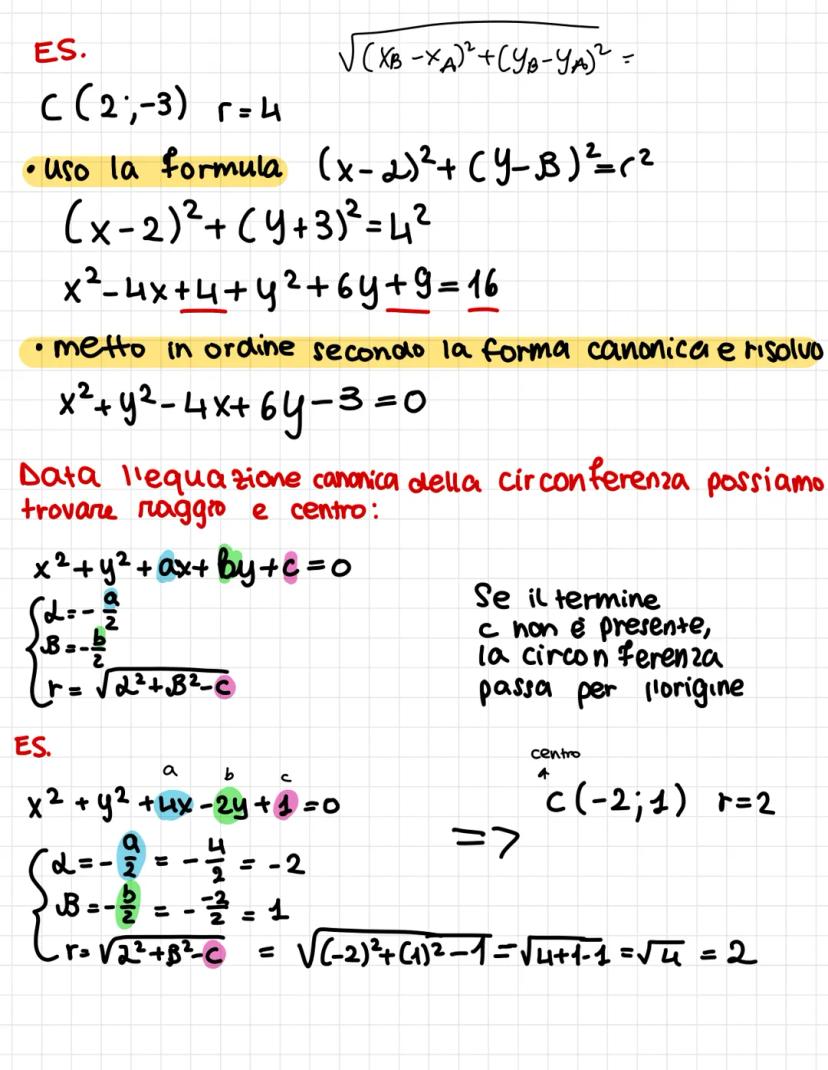 ES.
√(xB-xA)²+(yB-yA)² =
C (2;-3) r=4
• uso la formula (x-α)²+(y-β)²=r²
(x-2)²+(y+3)²=4²
x²-4x+4+y²+6y+9=16
• metto in ordine secondo la forma canonica e risolvo
x²+y²-4x+6y-3=0
Data l'equazione canonica della circonferenza possiamo
trovare raggio e centro:
x²+y²+ax+by+c=0
α=-a/2
β=-b/2
r=√α²+β²-c
Se il termine
c non è presente,
la circonferenza
passa per l'origine
ES.
a b c
x²+y²+4x-2y+1=0
α=-a/2 = -4/2 = -2
β=-b/2 = --2/2 = 1
r=√α²+β²-c = √(-2)²+(1)²-1=√4+1-1=√4=2
centro
=> C(-2;1) r=2